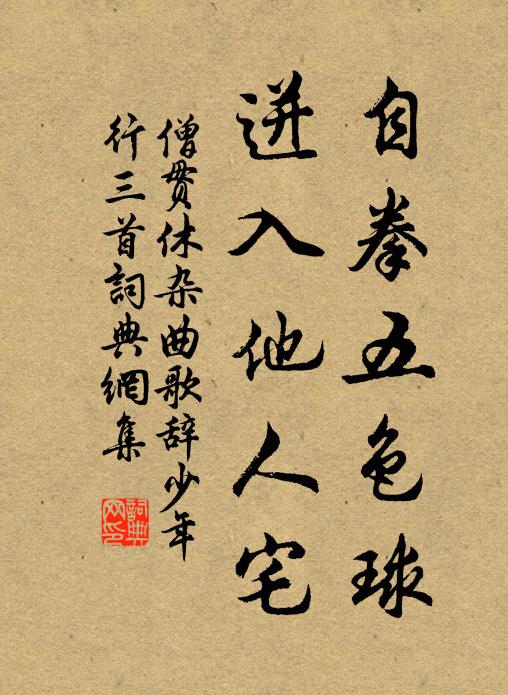 自拳五色球
迸入他人宅
僧贯休杂曲歌辞少年
行三首詞典網集
詞典网印